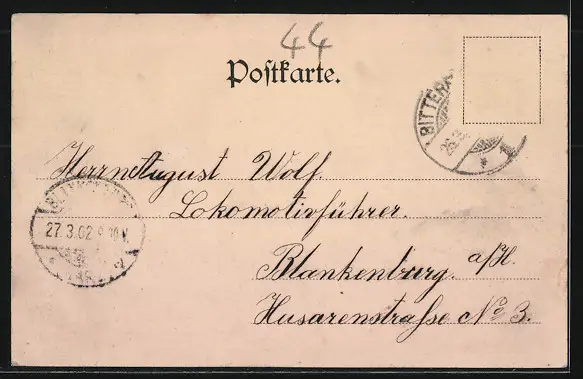 44
Postkarte.
BITTERF
26.3.
Herrn August Wolf.
Lokomotivführer.
27.3.02
V.
Blankenburg a/H.
Husarenstrasse No 3.